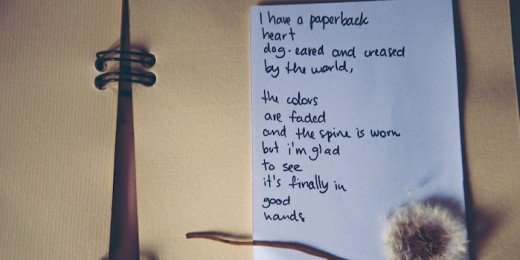 I have a paperback
heart
dog-eared and creased
by the world,
the colors
are faded
and the spine is worn
but i'm glad
to see
it's finally in
good
hands